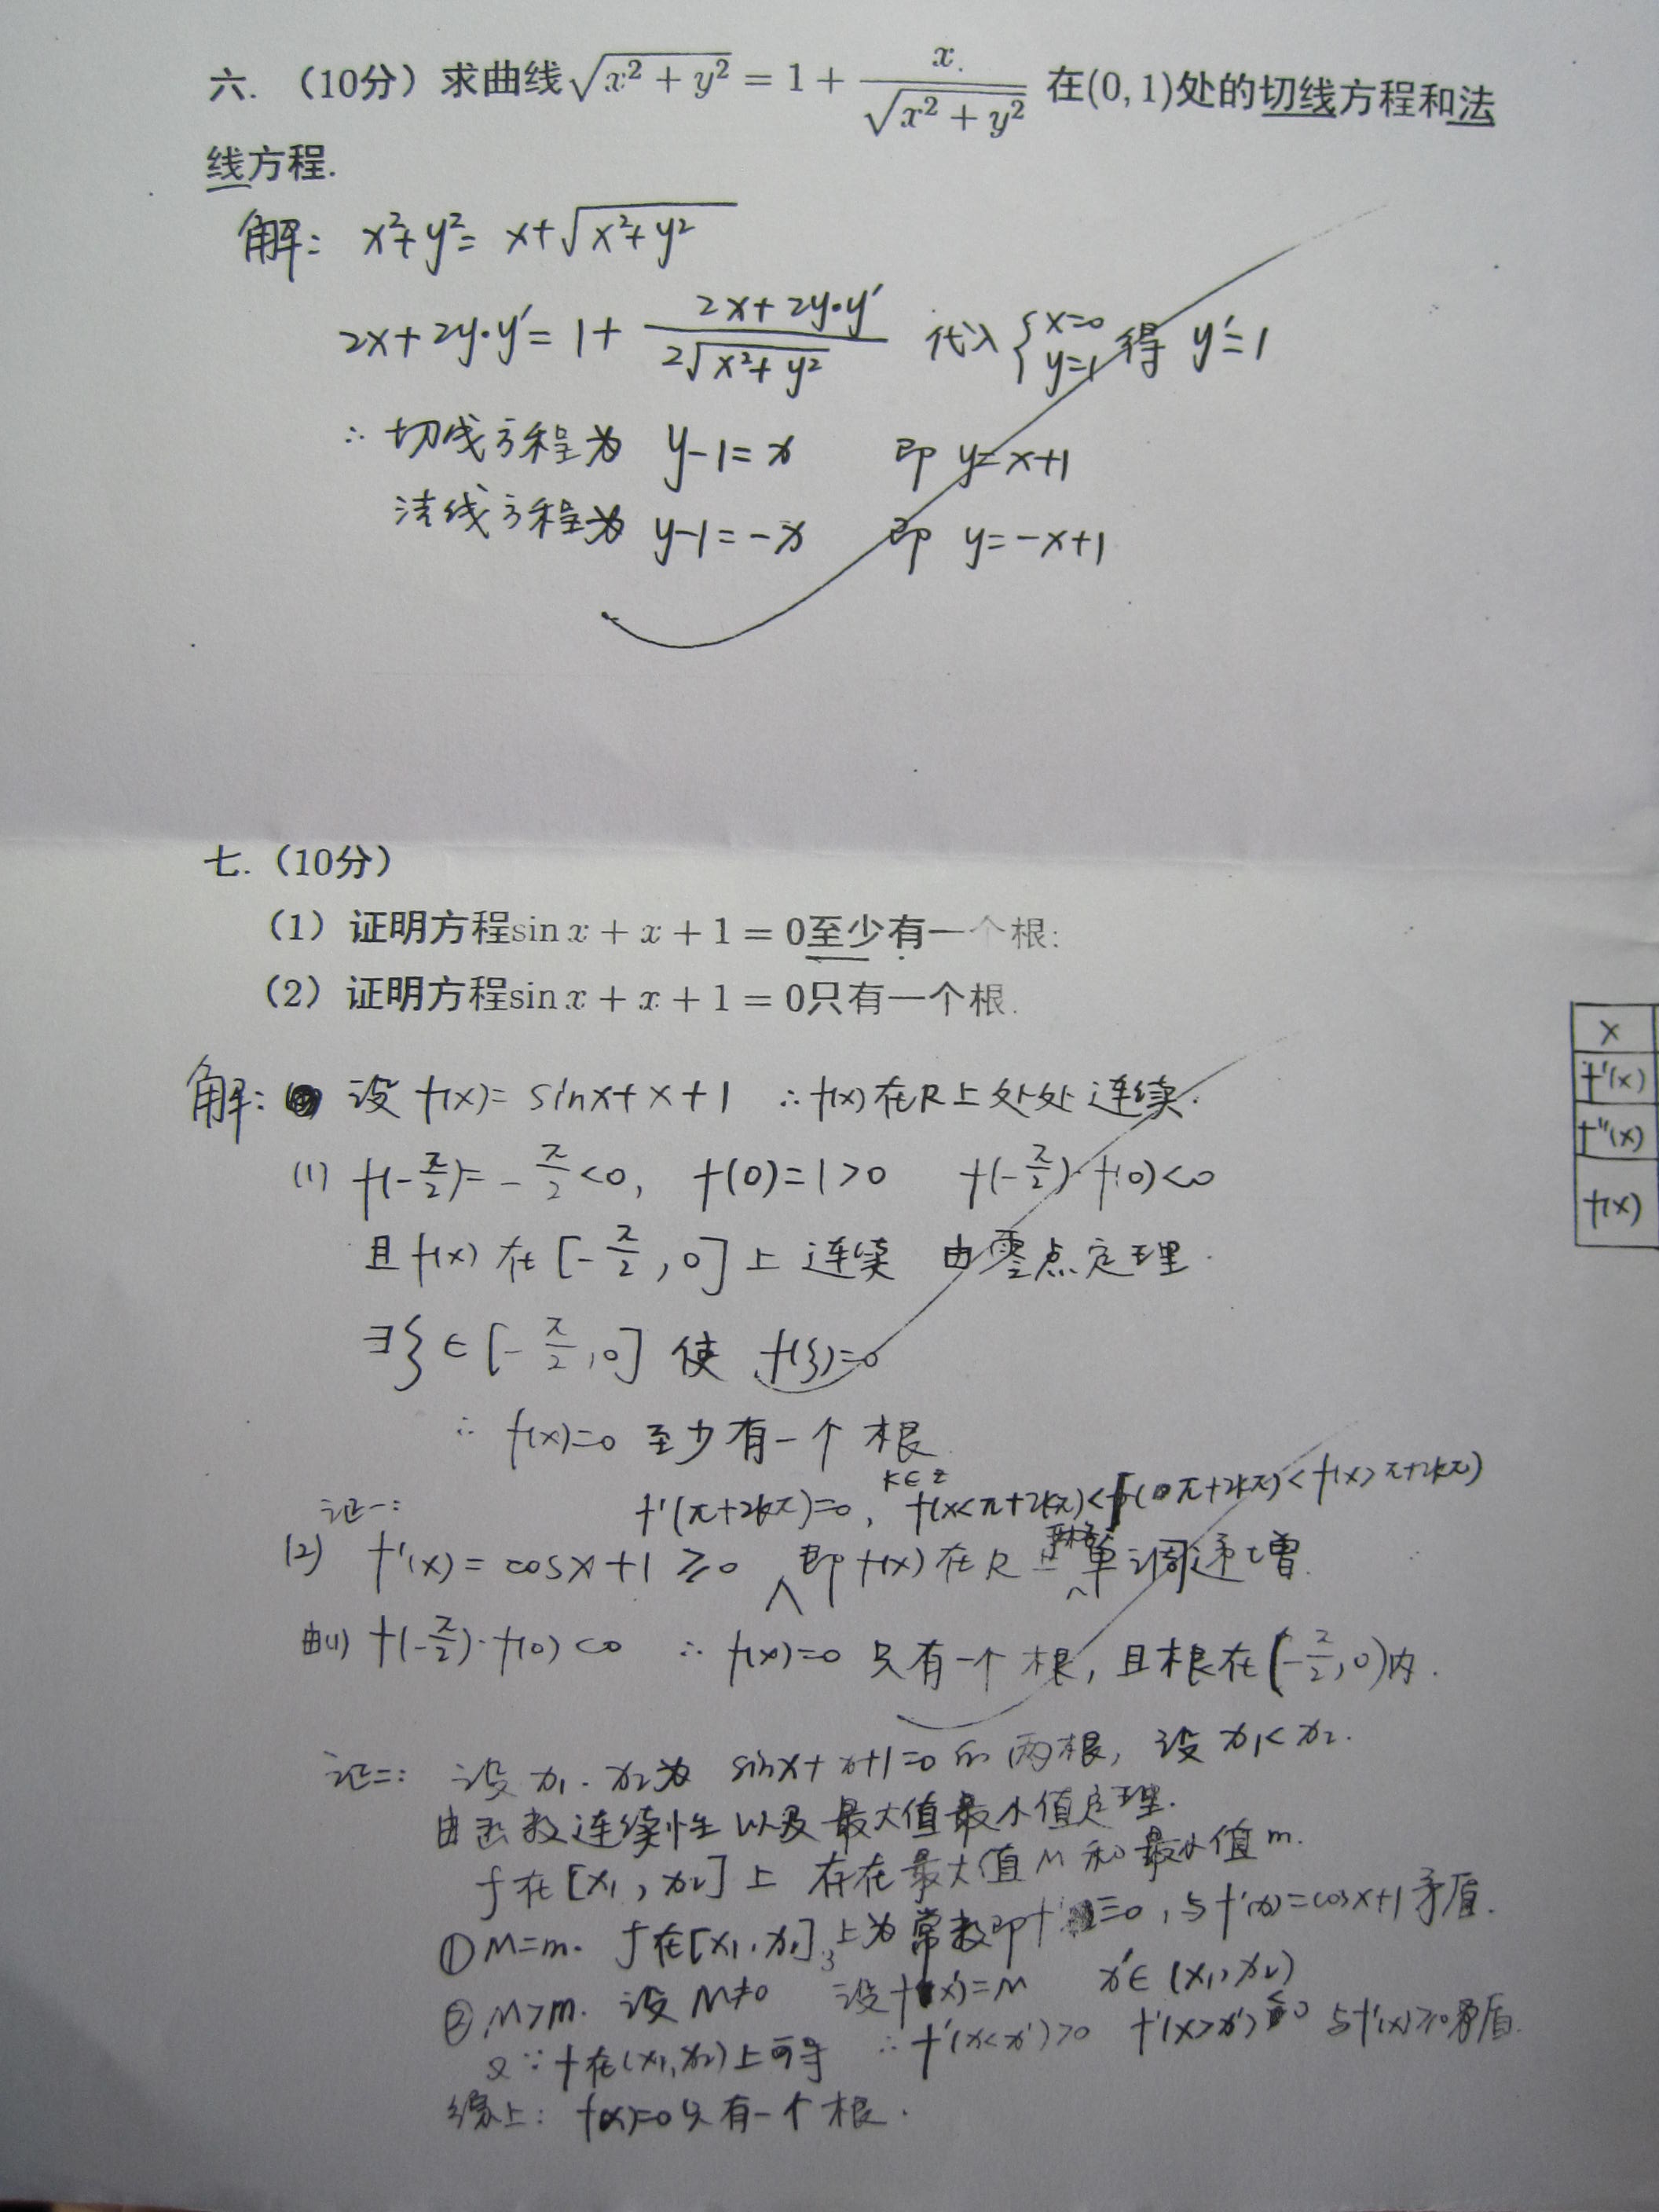 六. （10分）求曲线√(x² + y²) = 1 + x/√(x² + y²) 在(0, 1)处的切线方程和法
线方程.
解: x²+y²= x+√(x²+y²)
2x+2y·y'= 1+ (2x+2y·y')/(2√(x²+y²)) 代入 {x=0 y=1 得 y'=1
∴ 切线方程为 y-1=x 即 y=x+1
法线方程为 y-1=-x 即 y=-x+1
七.（10分）
（1）证明方程sin x + x + 1 = 0至少有一个根;
（2）证明方程sin x + x + 1 = 0只有一个根.
解: 设 f(x)= sinx+x+1 ∴f(x)在R上处处连续.
(1) f(-π/2)= -π/2 <0, f(0)=1>0 f(-π/2)·f(0)<0
且f(x) 在 [-π/2, 0] 上 连续 由零点定理.
∃ξ∈[-π/2, 0] 使 f(ξ)=0
∴ f(x)=0 至少有一个根.
证一: f'(π+2kπ)=0, k∈Z f(x<π+2kπ)<f(π+2kπ)<f(x>π+2kπ)
(2) f'(x) = cosx+1 ≥0 ∧ 即f(x)在R上严格单调递增.
由(1) f(-π/2)·f(0)<0 ∴ f(x)=0 只有一个根, 且根在(-π/2, 0)内.
证二: 设 x₁. x₂为 sinx+x+1=0的两根, 设 x₁<x₂.
由函数连续性以及最大值最小值定理.
f在[x₁, x₂]上 存在最大值M和最小值m.
①M=m. f在[x₁, x₂]上为常数即f'≡0, 与f'(x)=cosx+1矛盾.
②M>m. 设M≠0 设f(x')=M x'∈(x₁, x₂)
又∵f在(x₁, x₂)上可导 ∴f'(x<x')>0 f'(x>x')<0 与f'(x)≥0矛盾.
综上: f(x)=0只有一个根.
x
f'(x)
f''(x)
f(x)